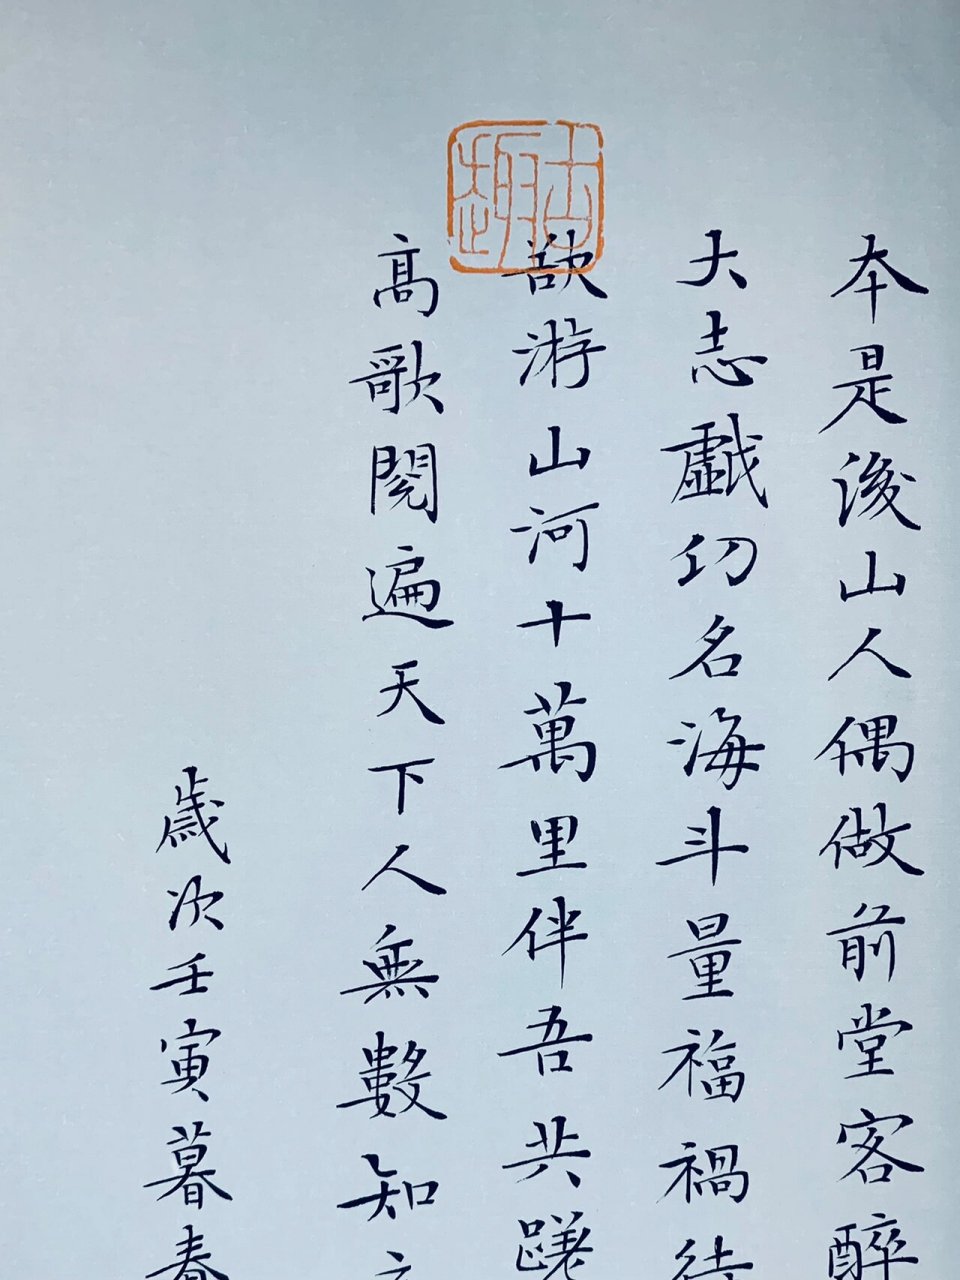 古趣
本是後山人偶做前堂客醉
大志戲功名海斗量福禍待
欲游山河十萬里伴吾共蹉
高歌閱遍天下人無數知
歲次壬寅暮春